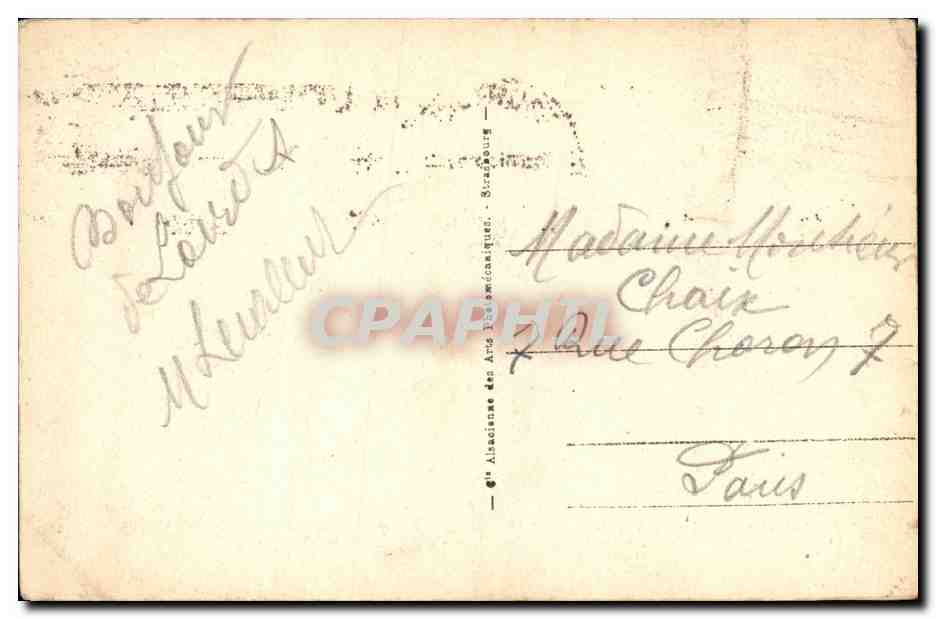 Bonjour
de Lourdes
Madame Monsieur
Chaix
7 Rue Choron 7
Paris
— Cie Alsacienne des Arts Photomécaniques. - Strasbourg —
CPAPHIL